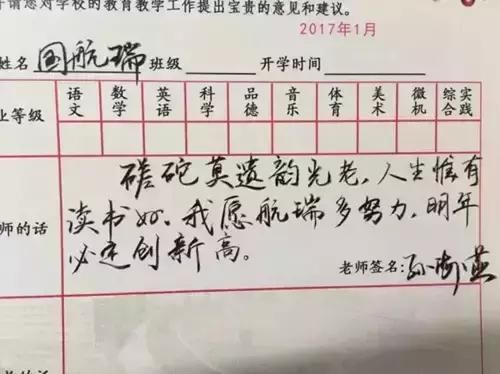 请您对学校的教育教学工作提出宝贵的意见和建议。
2017年1月
姓名 国航瑞 班级 开学时间
业等级 语文 数学 英语 科学 品德 音乐 体育 美术 微机 综合实践
师的话
磋砣莫遗韵光老，人生惟有
读书好。我愿航瑞多努力，明年
必定创新高。
老师签名：